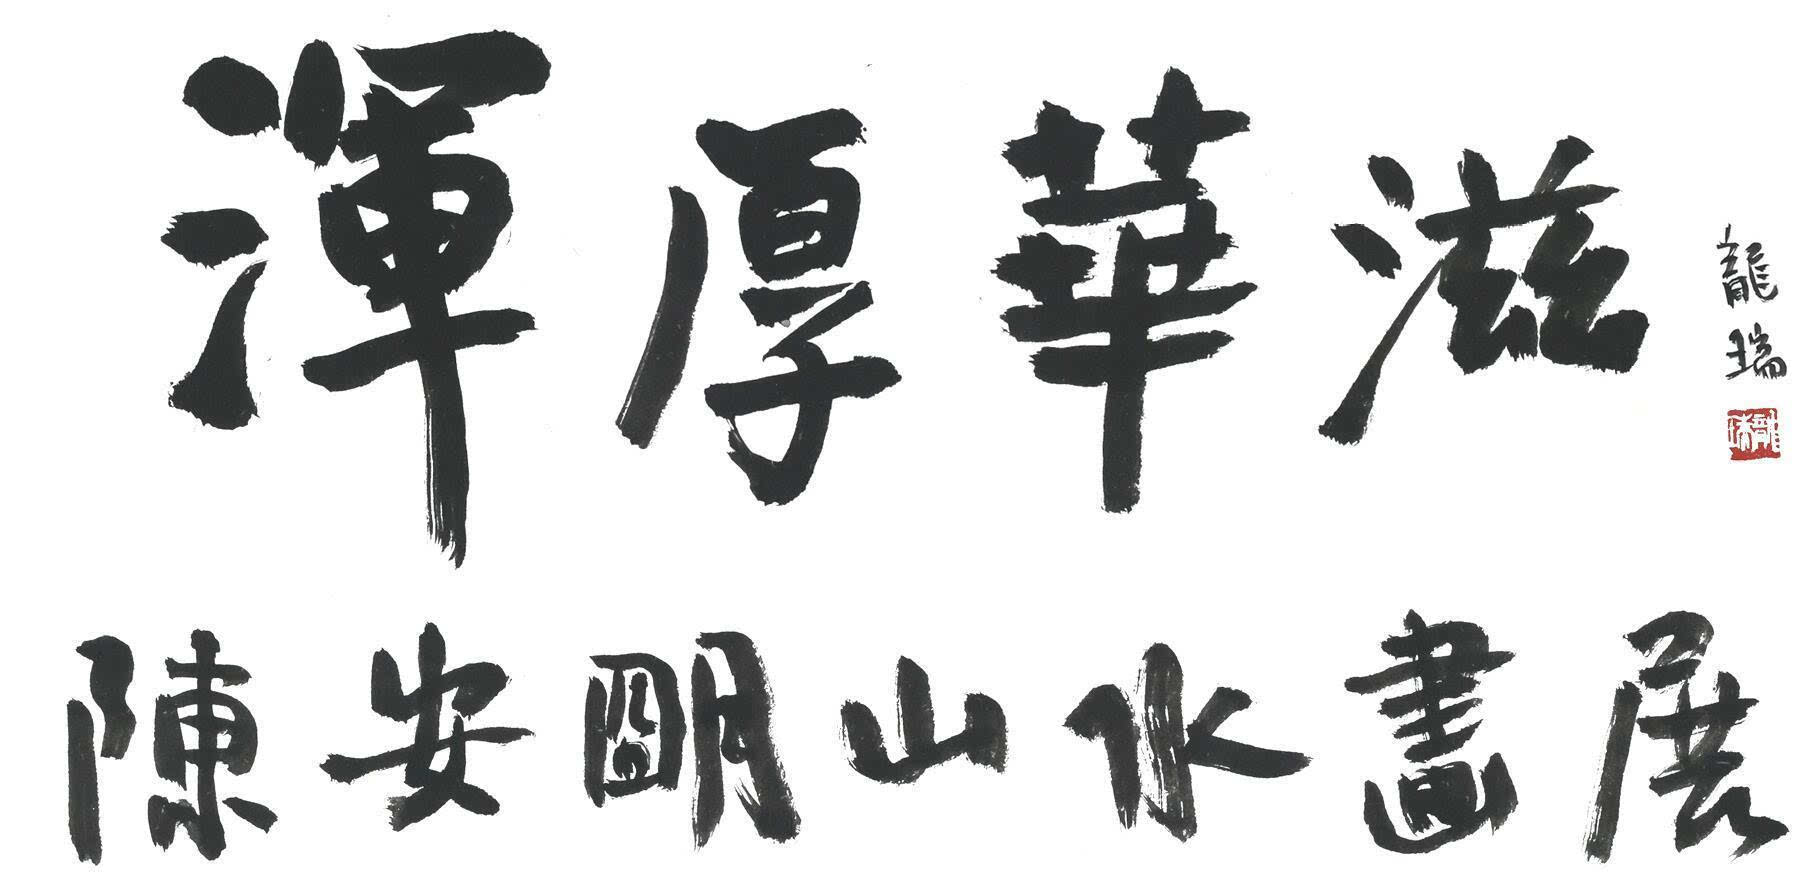 渾厚華滋
龍瑞
龍瑞
陳安明山水畫展